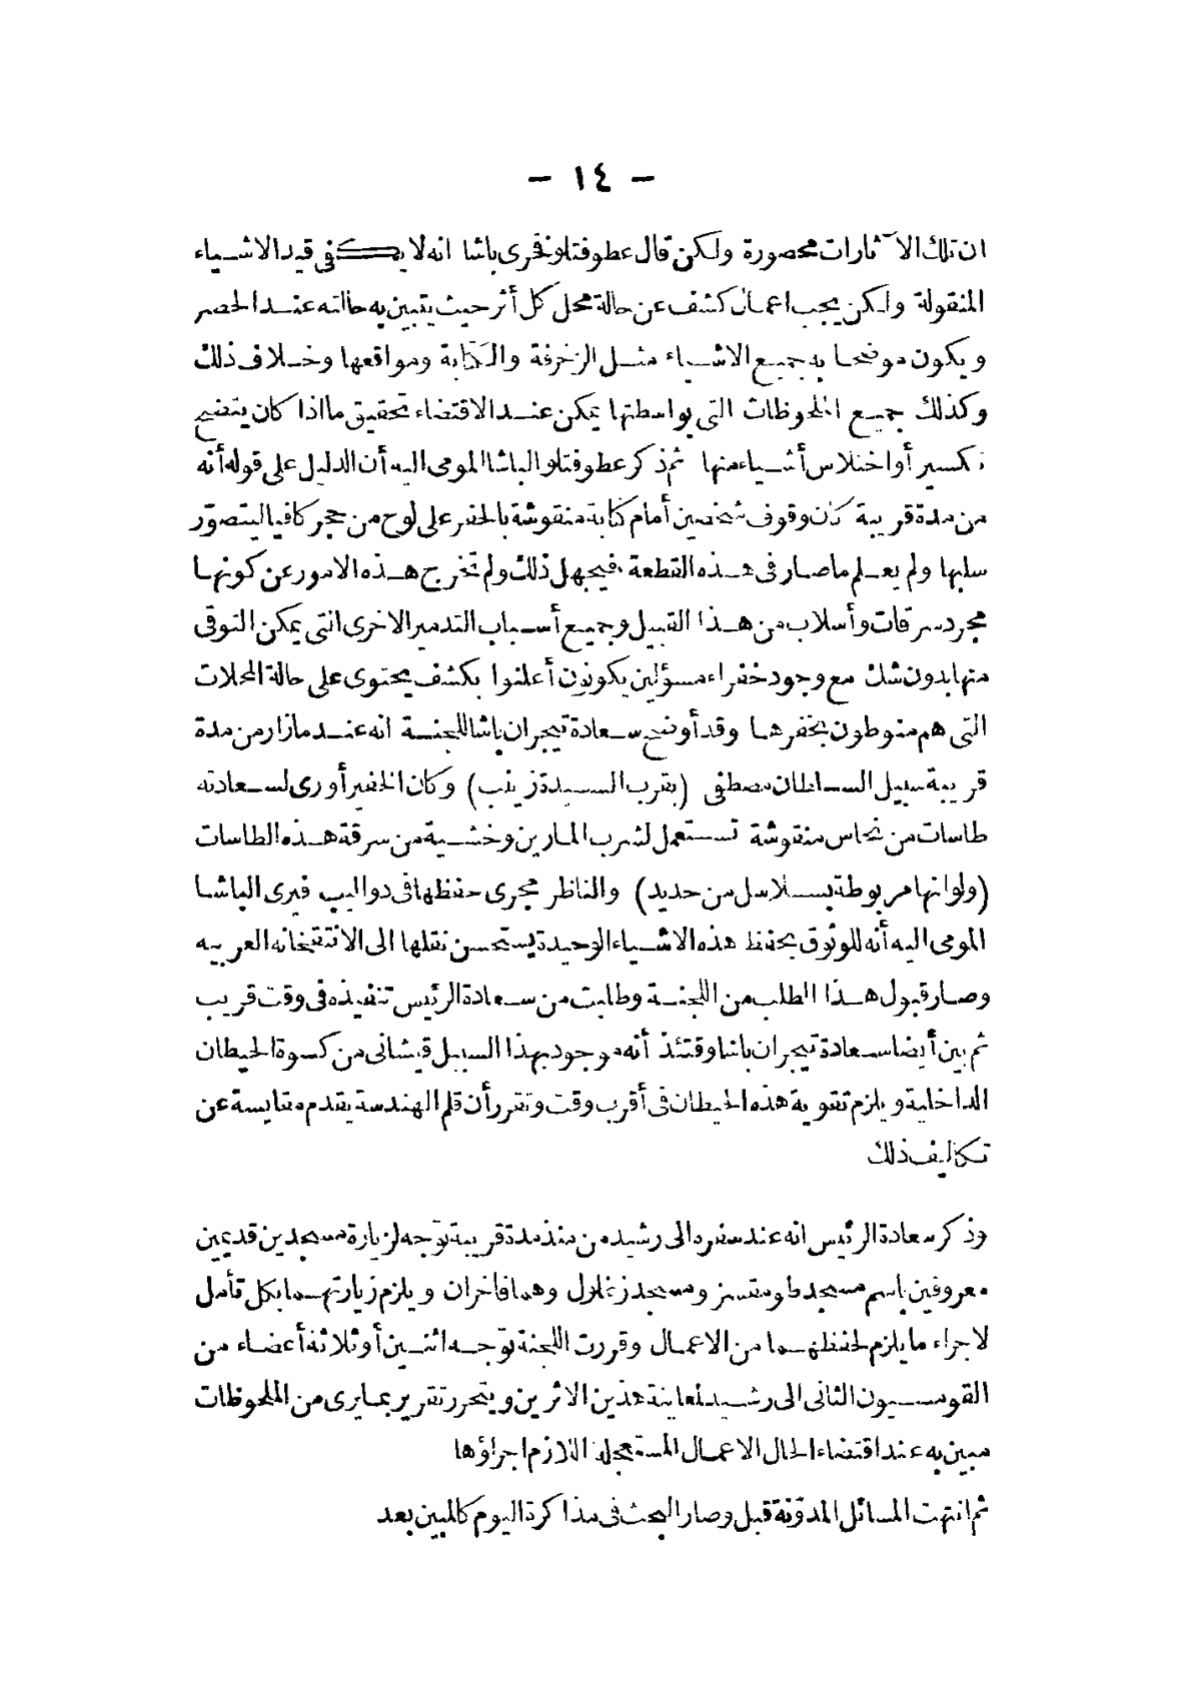 — ١٤ —
ان تلك الآثارات محصورة ولكن قال عطوفتلو فخرى باشا انه لا يكفى قيد الاشياء
المنقولة ولكن يجب اعمال كشف عن حالة محل كل أثر حيث يتبين به حالته عند الحصر
ويكون موضحا به جميع الاشياء مثل الزخرفة والكتابة ومواقعها وخلاف ذلك
وكذلك جميع الملحوظات التى بواسطتها يمكن عند الاقتضاء تحقيق ما اذا كان يتضح
تكسير أو اختلاس أشياء منها ثم ذكر عطوفتلو الباشا المومى اليه أن الدليل على قوله أنه
من مدة قريبة كان وقوف شخصين أمام كتابة منقوشة بالحفر على لوح من حجر كافيا ليتصوّر
سلبها ولم يعلم ما صار فى هذه القطعة فيجهل ذلك ولم تخرج هذه الامور عن كونها
مجرد سرقات وأسلاب من هذا القبيل وجميع أسباب التدمير الاخرى التى يمكن التوقى
منها بدون شك مع وجود خفراء مسؤلين يكونون أعلنوا بكشف يحتوى على حالة المحلات
التى هم منوطون بخفرها وقد أوضح سعادة تيجران باشا للجنة انه عند ما زار من مدة
قريبة سبيل السلطان مصطفى (بقرب السيدة زينب) وكان الخفير أورى لسعادته
طاسات من نحاس منقوشة تستعمل لشرب المارين وخشية من سرقة هذه الطاسات
(ولو انها مربوطة بسلاسل من حديد) والناظر مجرى حفظها فى دواليب فيرى الباشا
المومى اليه أنه للوثوق بحفظ هذه الاشياء الوحيدة يستحسن نقلها الى الانتقخانه العربيه
وصار قبول هذا الطلب من اللجنة وطلبت من سعادة الرئيس تنفيذه فى وقت قريب
ثم بين أيضا سعادة تيجران باشا وقتئذ أنه موجود بهذا السبيل قيشانى من كسوة الحيطان
الداخلية ويلزم تقوية هذه الحيطان فى أقرب وقت وتقرر أن قلم الهندسة يقدم مقايسة عن
تكاليف ذلك
وذكر سعادة الرئيس انه عند سفره الى رشيد من منذ مدة قريبة توّجه لزيارة مسجدين قديمين
معروفين باسم مسجد طومقسز ومسجد زغلول وهما فاخران ويلزم زيارتهما بكل تأمل
لاجراء ما يلزم لحفظهما من الاعمال وقررت اللجنة توّجه اثنين أو ثلاثة أعضاء من
القومسيون الثانى الى رشيد لمعاينة هذين الاثرين ويتحرر تقرير بما يرى من الملحوظات
مبين به عند اقتضاء الحال الاعمال المستعجلة اللازم اجراؤها
ثم انتهت المسائل المدوّنة قبل وصار البحث فى مذاكرة اليوم كالمبين بعد